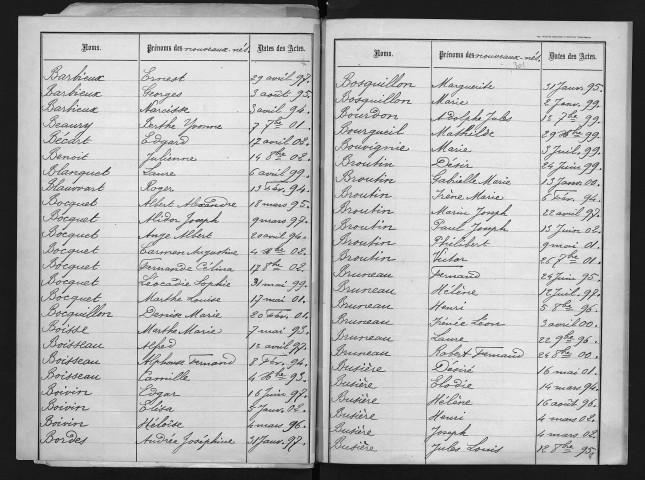 Noms. Prénoms des nouveaux-nés. Dates des Actes.
Barbieux Ernest 29 avril 97.
Barbieux Georges 3 août 95.
Barbieux Narcisse 3 avril 94.
Beaury Berthe Yvonne 7 7bre 01.
Bécart Edgard 17 avril 02.
Benoit Julienne 14 8bre 02.
Blanquet Laure 6 avril 99.
Blauwart Roger 13 Fév. 94.
Bocquet Albert Alexandre 18 mars 95.
Bocquet Alidor Joseph 9 mars 97.
Bocquet Ange Albert 20 avril 94.
Bocquet Carmen Augustine 4 Xbre 02.
Bocquet Fernande Célina 17 8bre 02.
Bocquet Léocadie Sophie 31 mai 99.
Bocquet Marthe Louise 17 mai 01.
Bocquillon Denise Marie 20 Fév. 01.
Boisse Marthe Marie 7 mai 93.
Boisseau Alfred 15 avril 97.
Boisseau Alphonse Fernand 8 Fév. 94.
Boisseau Camille 4 Xbre 93.
Boivin Edgar 16 Juin 97.
Boivin Elisa 5 Janv. 02.
Boivin Héloïse 4 mars 96.
Bordes Andrée Joséphine 31 Janv. 97.
Noms. Prénoms des nouveaux-nés. Dates des Actes.
Bosquillon Marguerite 31 Janv. 95.
Bosquillon Marie 2 Janv. 99.
Bourdon Adolphe Jules 12 7bre 99.
Bourgueil Mathilde 29 Xbre 99.
Bouvignie Marie 3 Juil. 99.
Broutin Désiré 24 Juin 99.
Broutin Gabrielle Marie 13 Janv. 00.
Broutin Irène Marie 6 Fév. 94.
Broutin Marin Joseph 22 avril 97.
Broutin Paul Joseph 15 Juin 02.
Broutin Philibert 9 mai 01.
Broutin Victor 26 7bre 01.
Bruneau Fernand 24 Juin 95.
Bruneau Hélène 12 Juil. 97.
Bruneau Henri 5 8bre 96.
Bruneau Irénée Léon 3 avril 00.
Bruneau Laure 22 9bre 96.
Bruneau Robert Fernand 24 8bre 00.
Busière Désiré 16 mai 01.
Busière Elodie 14 mars 94.
Busière Hélène 16 août 96.
Busière Henri 4 mars 02.
Busière Joseph 4 mars 02.
Busière Jules Louis 12 8bre 95.